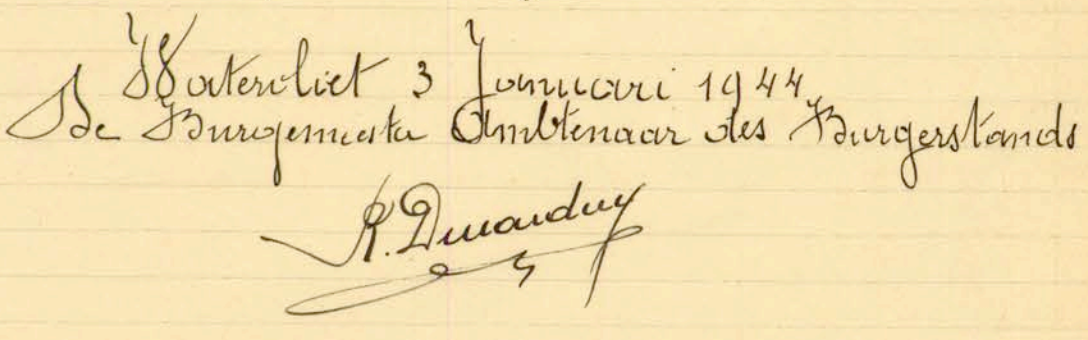 Watervliet 3 Januari 1944
De Burgemeester Ambtenaar des Burgerstands
R.